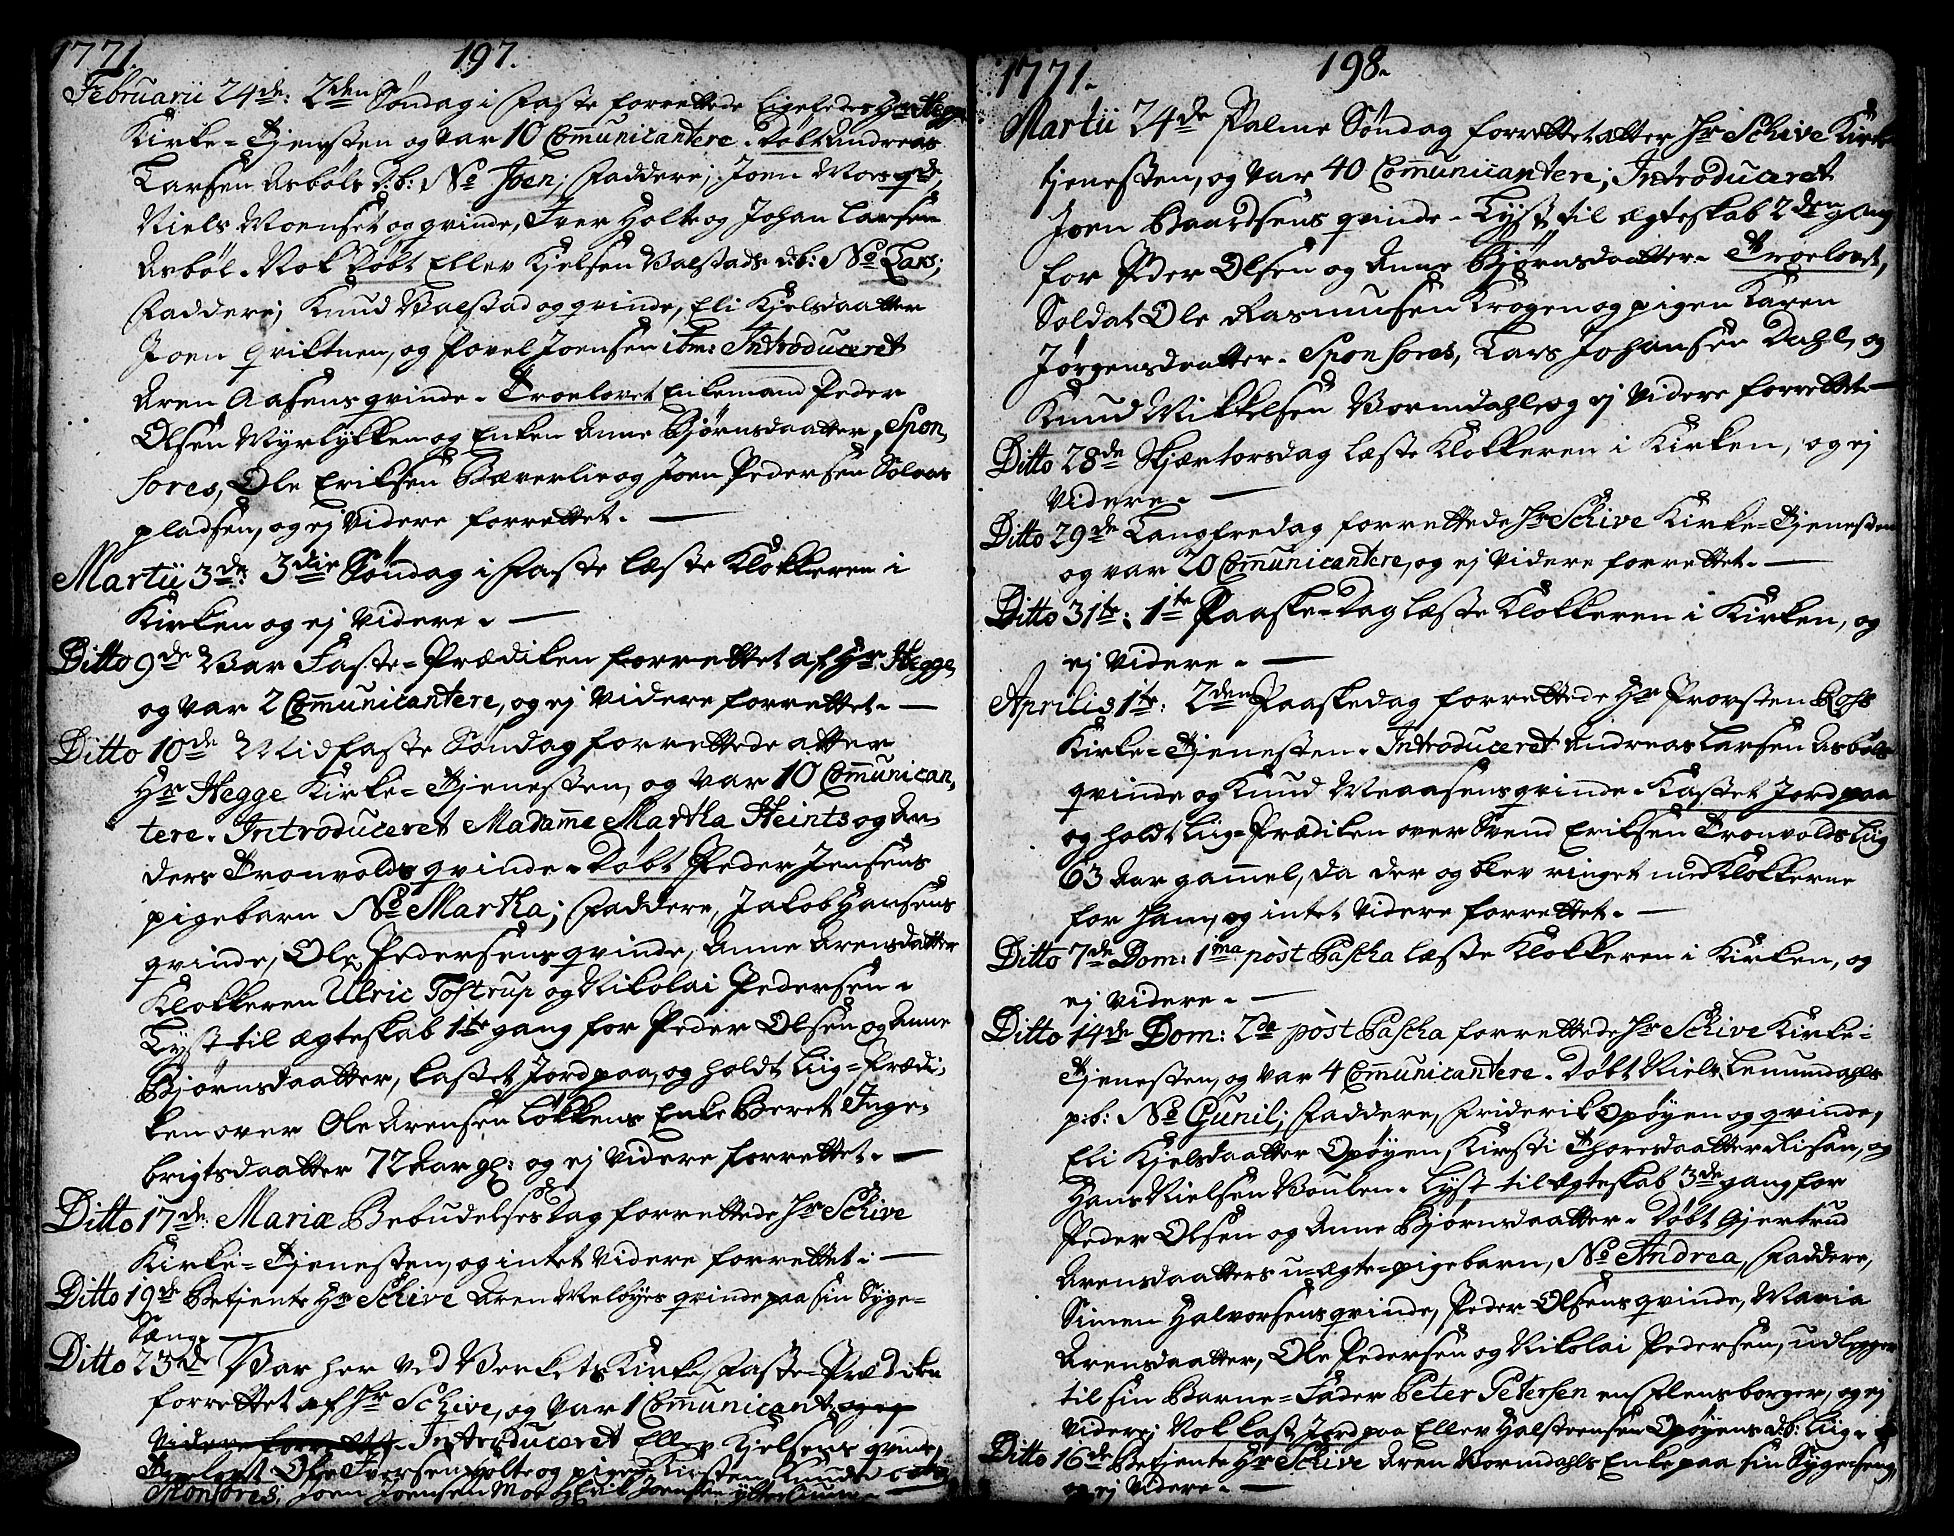 1771. 197.
Februarii 24de: 2den Søndag i Faste forrettede ligeledes Hr Hegge
Kirke=Tienesten og var 10 Communicantere. Døbt Andreas
Larsen Asbøls d:b: No Joen; Faddere; Joen Moes qde,
Niels Moenset og qvinde, Iver Holte og Johan Larsen
Asbøl. Nok Døbt Ellev Kjelsen Balstads d:b: No Lars;
Faddere; Knud Balstad og qvinde, Eli Kjelsdaatter
Joen Qviktnen, og Povel Joensen ibm: Introduceret
Aren Aasens qvinde. Troelovet Enkemand Peder
Olsen Myrlykken og Enken Anne Bjørnsdaatter, Spon,
sores, Ole Eriksen Bæverlie og Joen Pedersen Solaas
pladsen, og ej videre forrettet.
Martii 3de: 3die Søndag i Faste læste Klokkeren i
Kirken og ej videre.
Ditto 9de Var Faste=Prædiken forrettet af Hr Hegge,
og var 2 Communicantere, og ej videre forrettet.
Ditto 10de Midfaste Søndag forrettede atter
Hr Hegge Kirke=Tjenesten, og var 10 Communican,
tere. Introduceret Madame Martha Heints og An,
ders Tronvolds qvinde. Døbt Peder Jensens
pigebarn No Martha; Faddere, Jakob Hansens
qvinde, Ole Pedersens qvinde, Anne Arensdatter
Klokkeren Ulric Tostrup og Nikolai Pedersen.
Lyst til ægteskab 1te gang for Peder Olsen og Anne
Bjørnsdaatter, kastet Jord paa, og holdt Liig=Prædi,
ken over Ole Arensen Løkkens Enke Beret Inge,
brigtsdaatter 72 Aar gl: og ej videre forrettet.
Ditto 17de: Mariæ Bebudelses Dag forrettede Hr Schive
Kirke=Tjenesten, og intet videre forrettet.
Ditto 19de Betjente Hr Schive Aren Meløyes qvinde paa sin Syge=
Sæng.
Ditto 23de Var her ved Kirke Faste=Prædiken
forrettet af Hr Schive, og var 1 Communicant, og ej
videre forrettet. Introduceret Ellev Kjelsens qvinde,
Troelovet Ole Iversen Holte og pigen Kirsten Knuds
Sponsores; Joen Joensen Moe Erik Joensen
1771. 198.
Martii 24de Palme Søndag forrettet atter Hr Schive Kirke
tjenesten, og var 40 Communicantere; Introduceret
Joen Baardsens qvinde. Lyst til ægteskab 2den gang
for Peder Olsen og Anne Bjørnsdaatter. Troelovet,
Soldat Ole Rasmusen Krogen og pigen Karen
Jørgensdaatter. Sponsores, Lars Johansen Dahl, og
Knud Mikkelsen Bormdahl, og ej videre forrettet.
Ditto 28de Skjærtorsdag læste Klokkeren i Kirken, og ej
videre.
Ditto 29de Langfredag forrettede Hr Schive Kirke=Tjenesten
og var 20 Communicantere, og ej videre forrettet.
Ditto 31te: 1te Paaske=Dag læste Klokkeren i Kirken, og
ej videre.
Aprilis 1te: 2den Paaskedag forrettede Hr Provsten
Kirke=Tjenesten. Introduceret Andreas Larsen Asbøls
qvinde og Knud Meaasens qvinde. Kastet Jord paa
og holdt Liig=Prædiken over Svend Eriksen Tronvolds Liig
63 Aar gammel, da der og blev ringet med Klokkerne
for ham, og intet videre forrettet.
Ditto 7de Dom: 1ma post Pascha læste Klokkeren i Kirken, og
ej videre.
Ditto 14de Dom: 2da post Pascha forrettede Hr Schive Kirke=
Tjenesten, og var 4 Communicantere. Døbt Niels Lemundahls
p:b: No Gunil; Faddere, Friderik Opøyen og qvinde,
Eli Kjelsdaatter Opøyen, Kirsti Thoresdaatter Risan, og
Hans Nielsen Boulen. Lyst til Ægteskab 3de gang for
Peder Olsen og Anne Bjørnsdaatter. Døbt Gjertrud
Arensdaatters u=ægte=pigebarn, No Andrea, Faddere,
Simen Halvorsens qvinde, Peder Olsens qvinde, Maria
Arensdaatter, Ole Pedersen og Nikolai Pedersen, udlegger
til sin Barne=Fader Peter Petersen en Flensborger, og ej
videre; Nok kast Jord paa Ellev Halsteensen Opøyens d:b: Liig.
Ditto 16de Betjente Hr Schive Aren Bormdahls Enke paa sin Sygeseng
og ej videre.